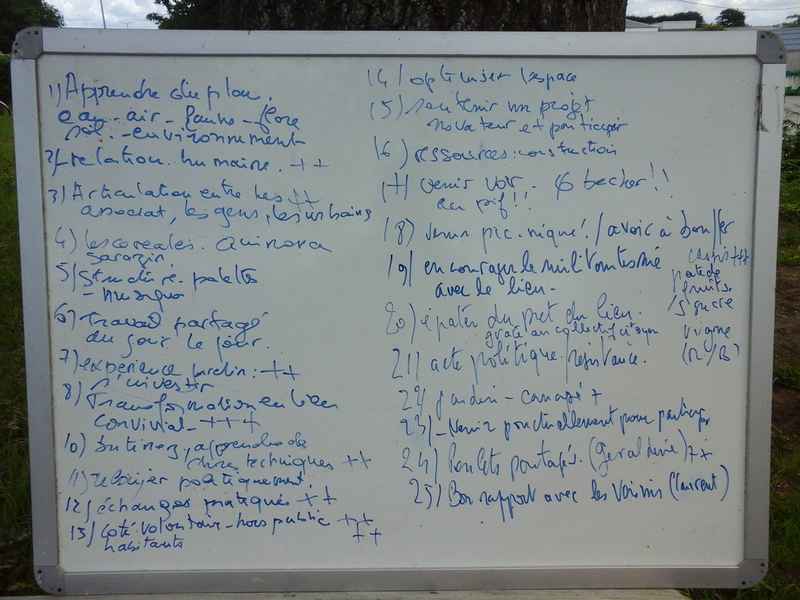 1) Apprendre
eau - air - faune - flore
sol - environnement
2) relation humaine. ++
3) Articulation entre les ++
associat, les gens, les urbains
4) les céréales. quinova
sarazin
5) Structure. palettes
6) Travail partagé
au jour le jour.
7) expérience jardin : ++
s'investir
8) Transformation en lien
convivial - +++
10) apprendre de
techniques ++
11) politiquement.
12) échanges pratiques ++
13) Coté volontaire - hors public ++
habitants ++
14) optimiser l'espace
15) soutenir un projet
novateur et participer
16) ressources : construction
17) venir voir.
au pif !!
18) venir pic-nique ! / avoir à bouffer
19) encourager
avec le lien.
cassis +++
pate de
fruits
/ sucre
vigne
(R/B)
20) épater du lien.
grâce au collectif citoyen
21) acte politique résistance.
22) jardin - canapé +
23) - Venir ponctuellement pour partager
24) Poulets partagés. (Géraldine) ++
25) Bon rapport avec les Voisins (Laurent)